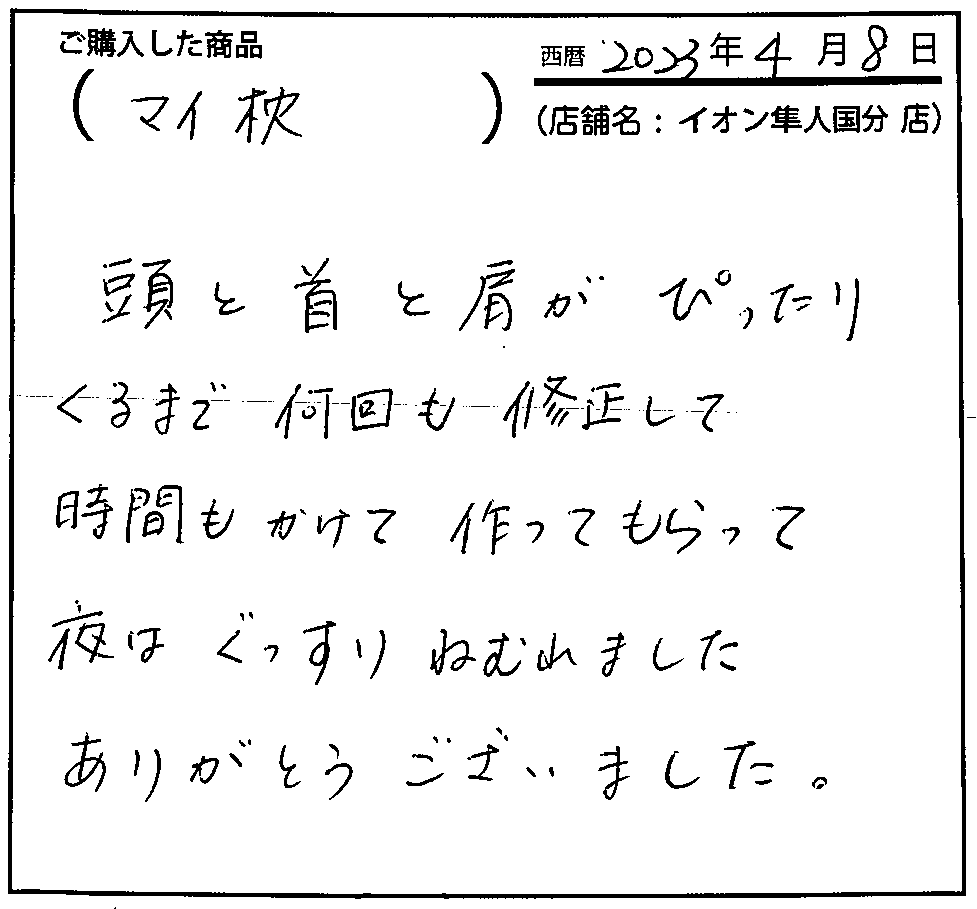 ご購入した商品
(マイ枕)
西暦 2023年4月8日
(店舗名:イオン隼人国分 店)
頭と首と肩が ぴったり
くるまで 何回も 修正して
時間も かけて 作ってもらって
夜は ぐっすり ねむれました
ありがとう ございました。